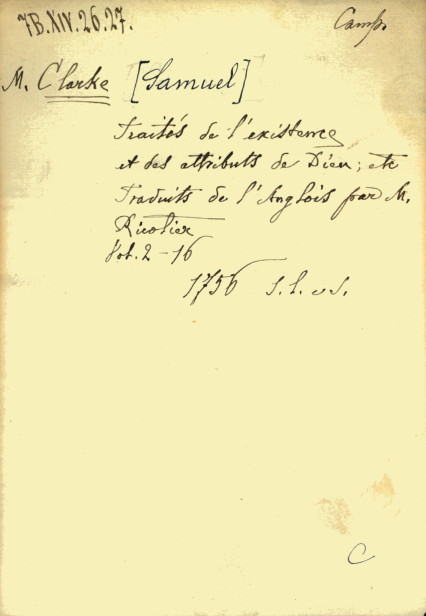 7B.XIV.26.27.
Camp.
M. Clarke [Samuel]
Traités de l'existence
et des attributs de Dieu; etc
Traduits de l'Anglois par M.
Ricotier
Vol. 2 - 16
1756 S. l.
C